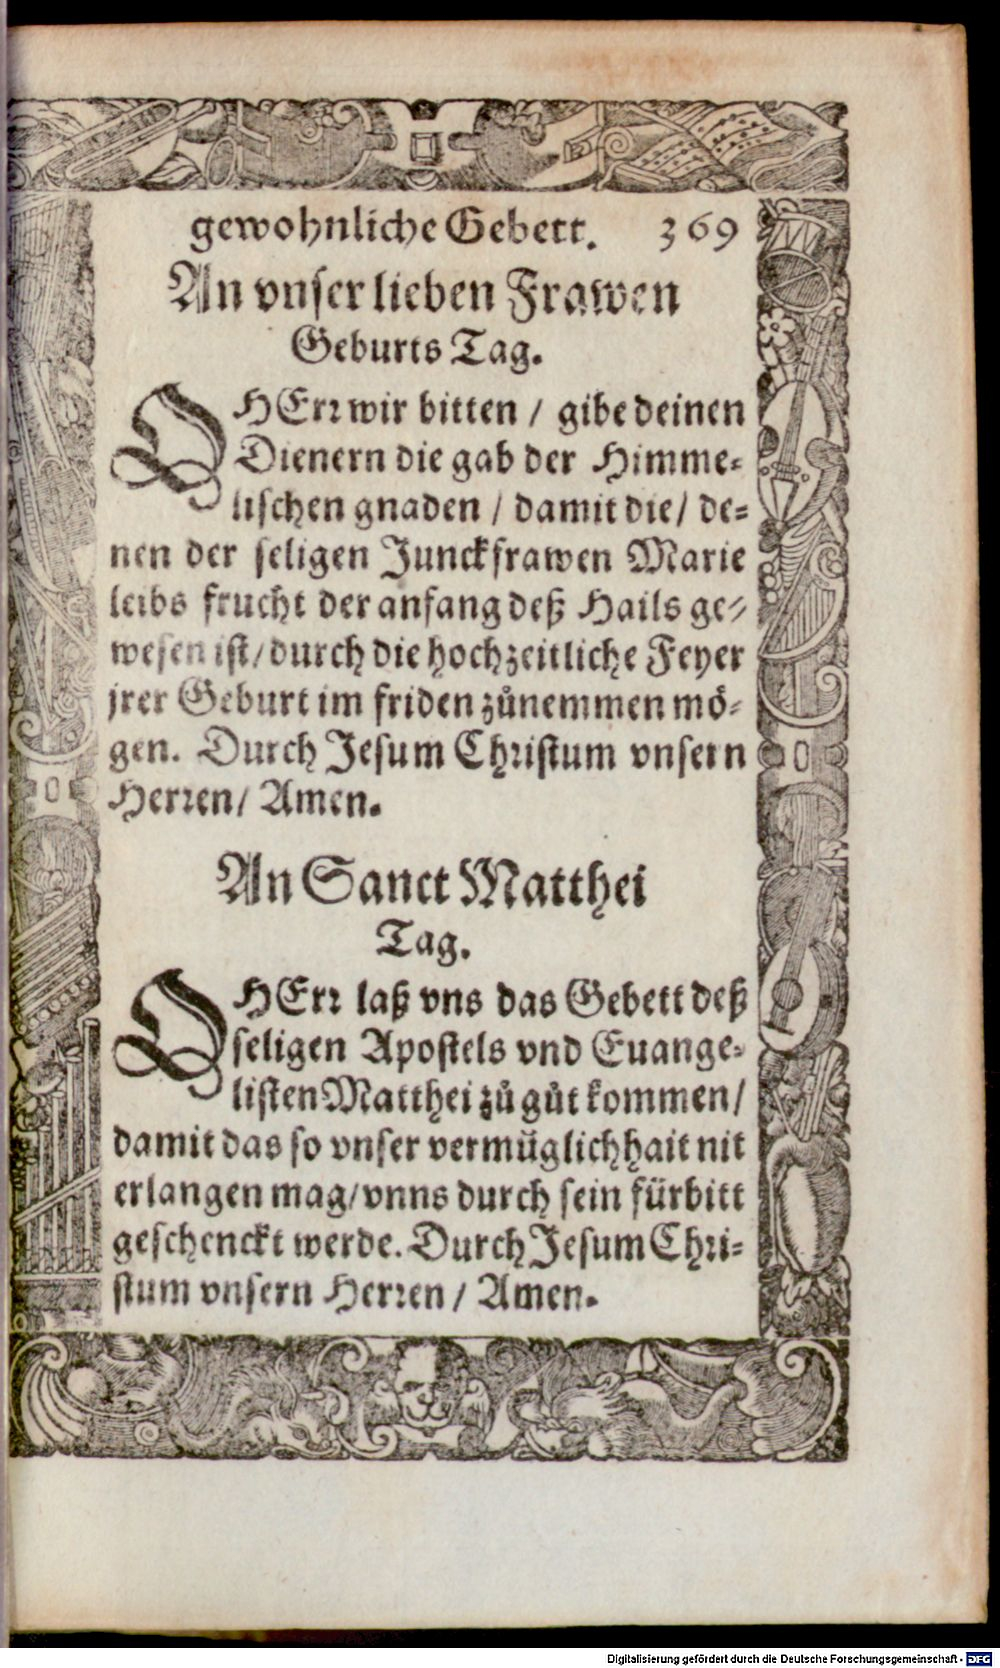 gewohnliche Gebett. 369
An vnser lieben Frawen
Geburts Tag.
O HErr wir bitten / gibe deinen
Dienern die gab der Himme-
lischen gnaden / damit die / de-
nen der seligen Junckfrawen Marie
leibs frucht der anfang deß Hails ge-
wesen ist / durch die hochzeitliche Feyer
jrer Geburt im friden zůnemmen mö-
gen. Durch Jesum Christum vnsern
Herren / Amen.
An Sanct Matthei
Tag.
O HErr laß vns das Gebett deß
seligen Apostels vnd Euange-
listen Matthei zů gůt kommen /
damit das so vnser vermüglichhait nit
erlangen mag / vnns durch sein fürbitt
geschenckt werde. Durch Jesum Chri-
stum vnsern Herren / Amen.
Digitalisierung gefördert durch die Deutsche Forschungsgemeinschaft - DFG